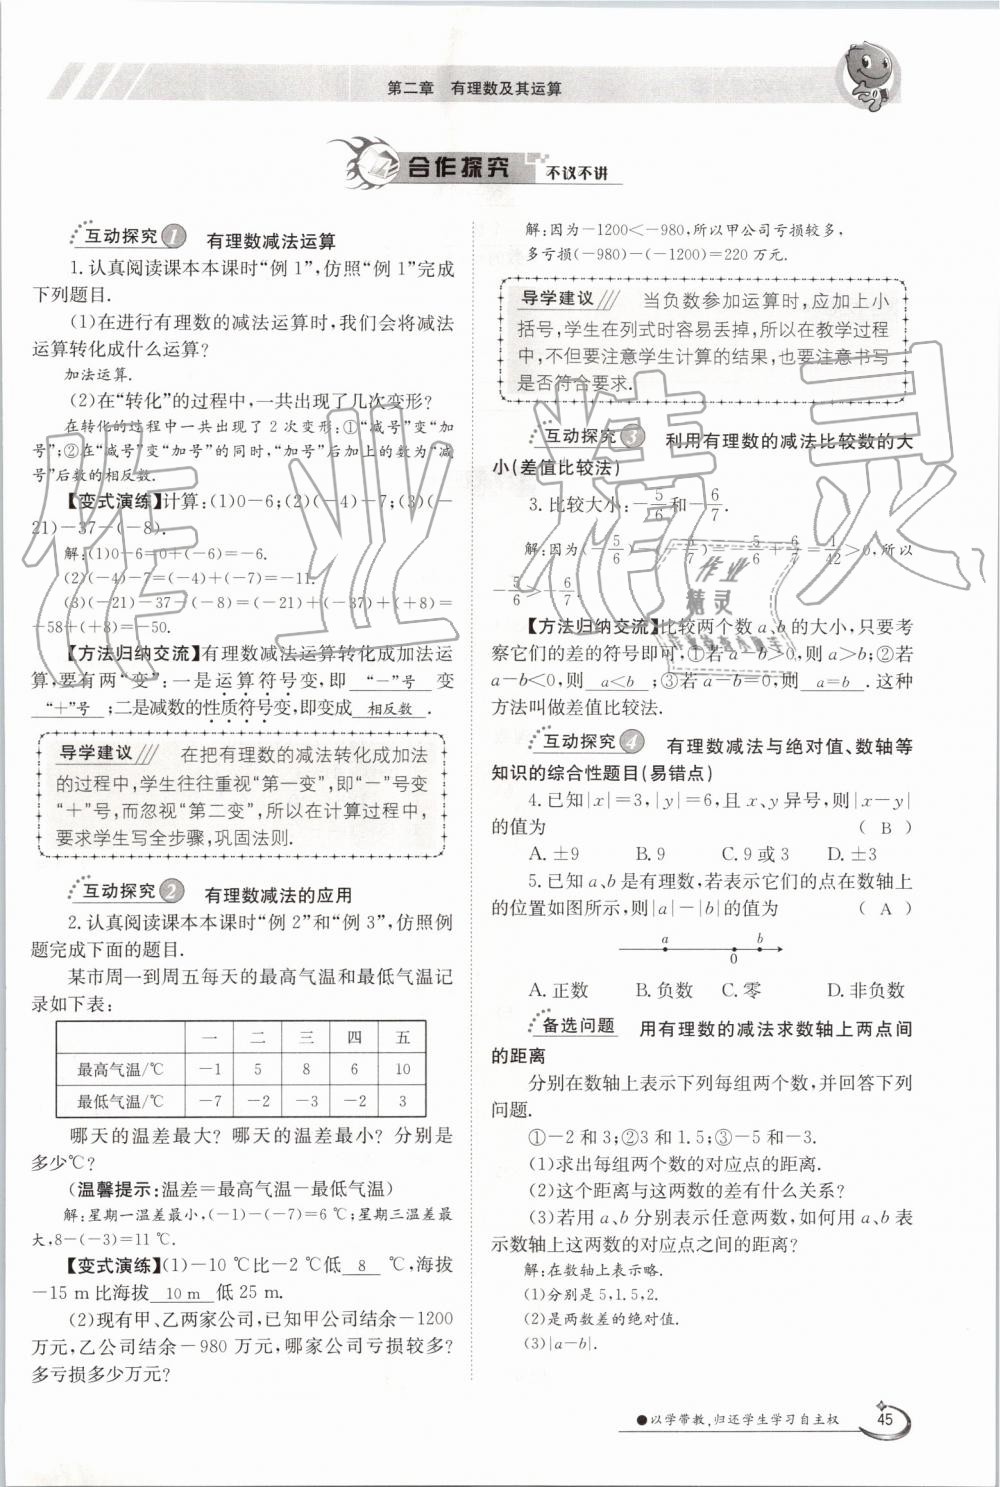 第二章 有理数及其运算
合作探究 不议不讲
互动探究1 有理数减法运算
1.认真阅读课本本课时“例1”,仿照“例1”完成
下列题目.
(1)在进行有理数的减法运算时,我们会将减法
运算转化成什么运算?
加法运算.
(2)在“转化”的过程中,一共出现了几次变形?
在转化的过程中一共出现了2次变形:①“减号”变“加
号”;②在“减号”变“加号”的同时,“加号”后加上的数为“减
号”后数的相反数.
【变式演练】计算:(1)0-6;(2)(-4)-7;(3)(-
21)-37-(-8).
解:(1)0-6=0+(-6)=-6.
(2)(-4)-7=(-4)+(-7)=-11.
(3)(-21)-37-(-8)=(-21)+(-37)+(+8)=
-58+(+8)=-50.
【方法归纳交流】有理数减法运算转化成加法运
算,要有两“变”:一是运算符号变,即 “-”号 变
“+”号 ;二是减数的性质符号变,即变成 相反数 .
导学建议 在把有理数的减法转化成加法
的过程中,学生往往重视“第一变”,即“-”号变
“+”号,而忽视“第二变”,所以在计算过程中,
要求学生写全步骤,巩固法则.
互动探究2 有理数减法的应用
2.认真阅读课本本课时“例2”和“例3”,仿照例
题完成下面的题目.
某市周一到周五每天的最高气温和最低气温记
录如下表:
一 二 三 四 五
最高气温/℃ -1 5 8 6 10
最低气温/℃ -7 -2 -3 -2 3
哪天的温差最大?哪天的温差最小?分别是
多少℃?
(温馨提示:温差=最高气温-最低气温)
解:星期一温差最小,(-1)-(-7)=6 ℃;星期三温差最
大,8-(-3)=11 ℃.
【变式演练】(1)-10 ℃比-2 ℃低 8 ℃,海拔
-15 m比海拔 10 m 低25 m.
(2)现有甲、乙两家公司,已知甲公司结余-1200
万元,乙公司结余-980万元,哪家公司亏损较多?
多亏损多少万元?
解:因为-1200<-980,所以甲公司亏损较多,
多亏损(-980)-(-1200)=220万元.
导学建议 当负数参加运算时,应加上小
括号,学生在列式时容易丢掉,所以在教学过程
中,不但要注意学生计算的结果,也要注意书写
是否符合要求.
互动探究3 利用有理数的减法比较数的大
小(差值比较法)
3.比较大小:-5/6和-6/7.
解:因为(-5/6)-(-6/7)=-5/6+6/7=1/42>0,所以
-5/6>-6/7.
【方法归纳交流】比较两个数a、b的大小,只要考
察它们的差的符号即可,①若a-b>0,则a>b;②若
a-b<0,则 a<b ;③若a-b=0,则 a=b .这种
方法叫做差值比较法.
互动探究4 有理数减法与绝对值、数轴等
知识的综合性题目(易错点)
4.已知|x|=3,|y|=6,且x、y异号,则|x-y|
的值为 ( B )
A.±9 B.9 C.9或3 D.±3
5.已知a、b是有理数,若表示它们的点在数轴上
的位置如图所示,则|a|-|b|的值为 ( A )
a 0 b
A.正数 B.负数 C.零 D.非负数
备选问题 用有理数的减法求数轴上两点间
的距离
分别在数轴上表示下列每组两个数,并回答下列
问题.
①-2和3;②3和1.5;③-5和-3.
(1)求出每组两个数的对应点的距离.
(2)这个距离与这两数的差有什么关系?
(3)若用a、b分别表示任意两数,如何用a、b表
示数轴上这两数的对应点之间的距离?
解:在数轴上表示略.
(1)分别是5,1.5,2.
(2)是两数差的绝对值.
(3)|a-b|.
●以学带教,归还学生学习自主权 45
作业精灵
作业
精灵